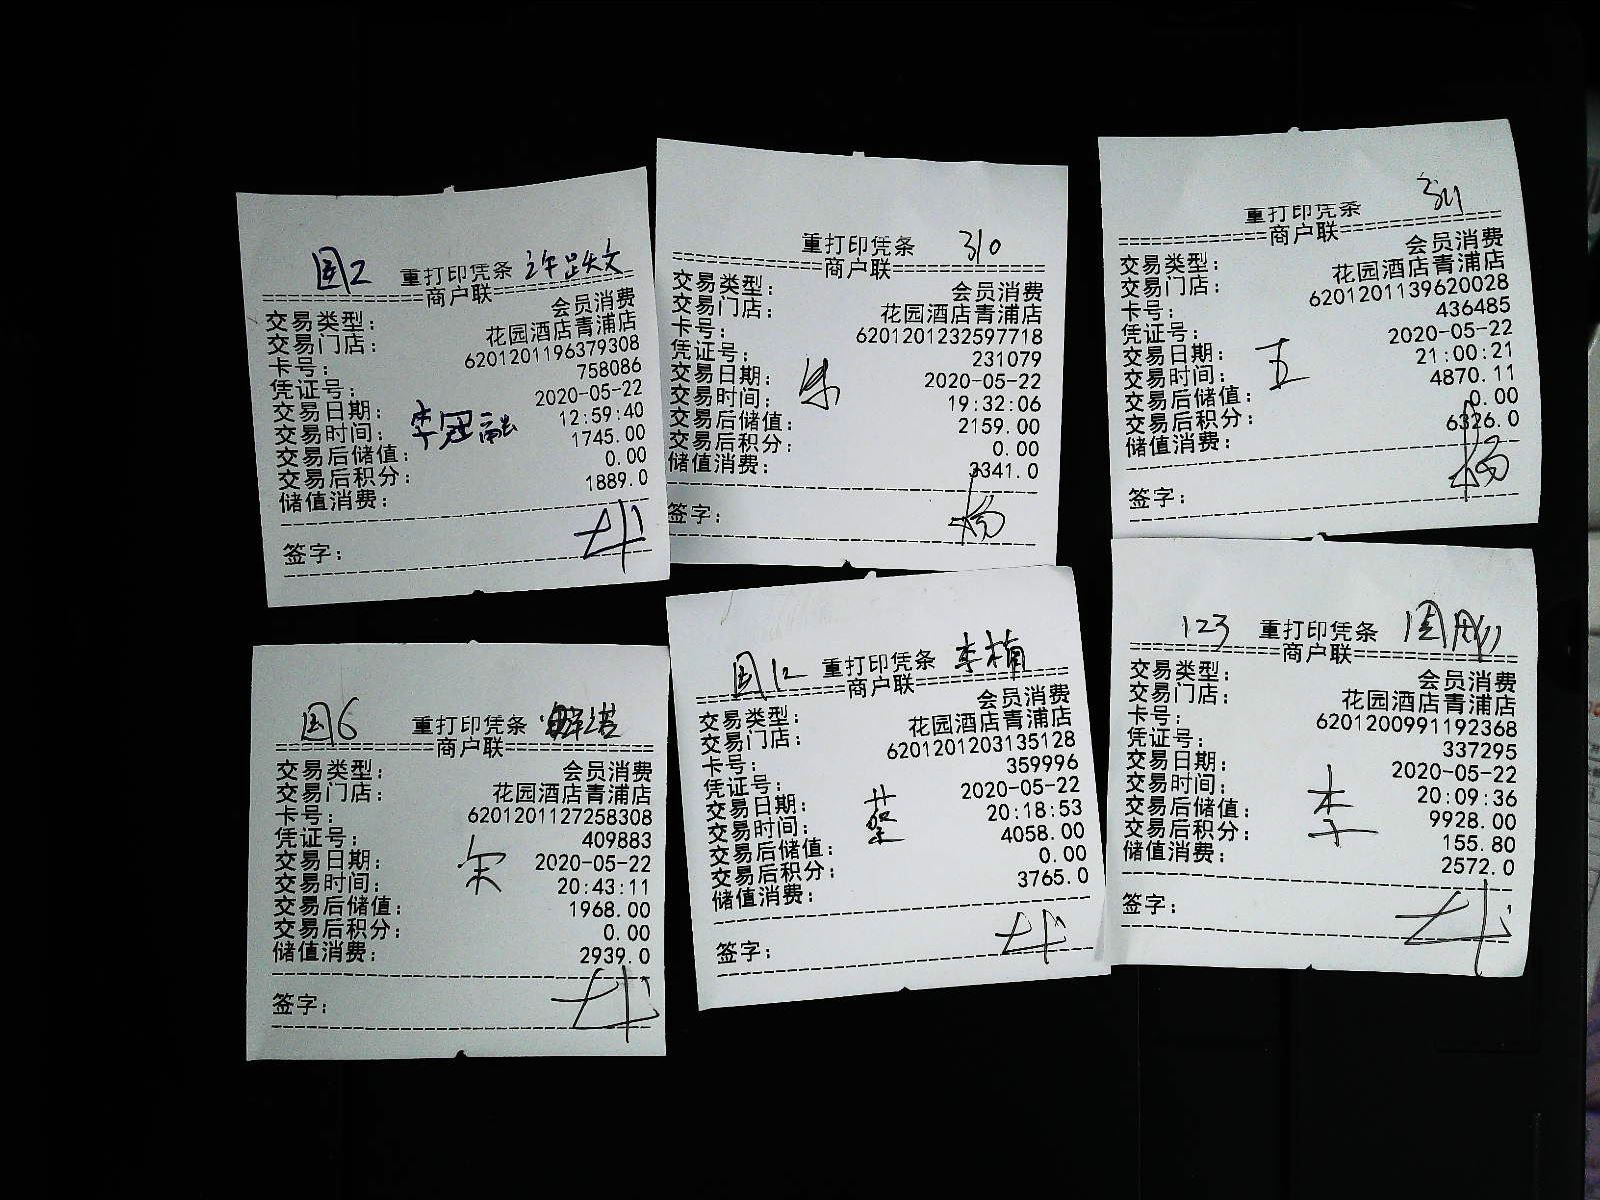 园2 重打印凭条 许跃文
商户联
交易类型: 会员消费
交易门店: 花园酒店青浦店
卡号: 6201201196379308
凭证号: 758086
交易日期: 2020-05-22
交易时间: 12:59:40
交易后储值: 1745.00
交易后积分: 0.00
储值消费: 1889.0
李冠融
签字:
310
重打印凭条
商户联
交易类型: 会员消费
交易门店: 花园酒店青浦店
卡号: 6201201232597718
凭证号: 231079
交易日期: 2020-05-22
交易时间: 19:32:06
交易后储值: 2159.00
交易后积分: 0.00
储值消费: 3341.0
朱
签字: 杨
311
重打印凭条
商户联
交易类型: 会员消费
交易门店: 花园酒店青浦店
卡号: 6201201139620028
凭证号: 436485
交易日期: 2020-05-22
交易时间: 21:00:21
交易后储值: 4870.11
交易后积分: 0.00
储值消费: 6326.0
王
签字: 杨
园6 重打印凭条
商户联
交易类型: 会员消费
交易门店: 花园酒店青浦店
卡号: 6201201127258308
凭证号: 409883
交易日期: 2020-05-22
交易时间: 20:43:11
交易后储值: 1968.00
交易后积分: 0.00
储值消费: 2939.0
宋
签字:
园12 重打印凭条 李楠
商户联
交易类型: 会员消费
交易门店: 花园酒店青浦店
卡号: 6201201203135128
凭证号: 359996
交易日期: 2020-05-22
交易时间: 20:18:53
交易后储值: 4058.00
交易后积分: 0.00
储值消费: 3765.0
签字:
123 重打印凭条 周刚
商户联
交易类型: 会员消费
交易门店: 花园酒店青浦店
卡号: 6201200991192368
凭证号: 337295
交易日期: 2020-05-22
交易时间: 20:09:36
交易后储值: 9928.00
交易后积分: 155.80
储值消费: 2572.0
李
签字: